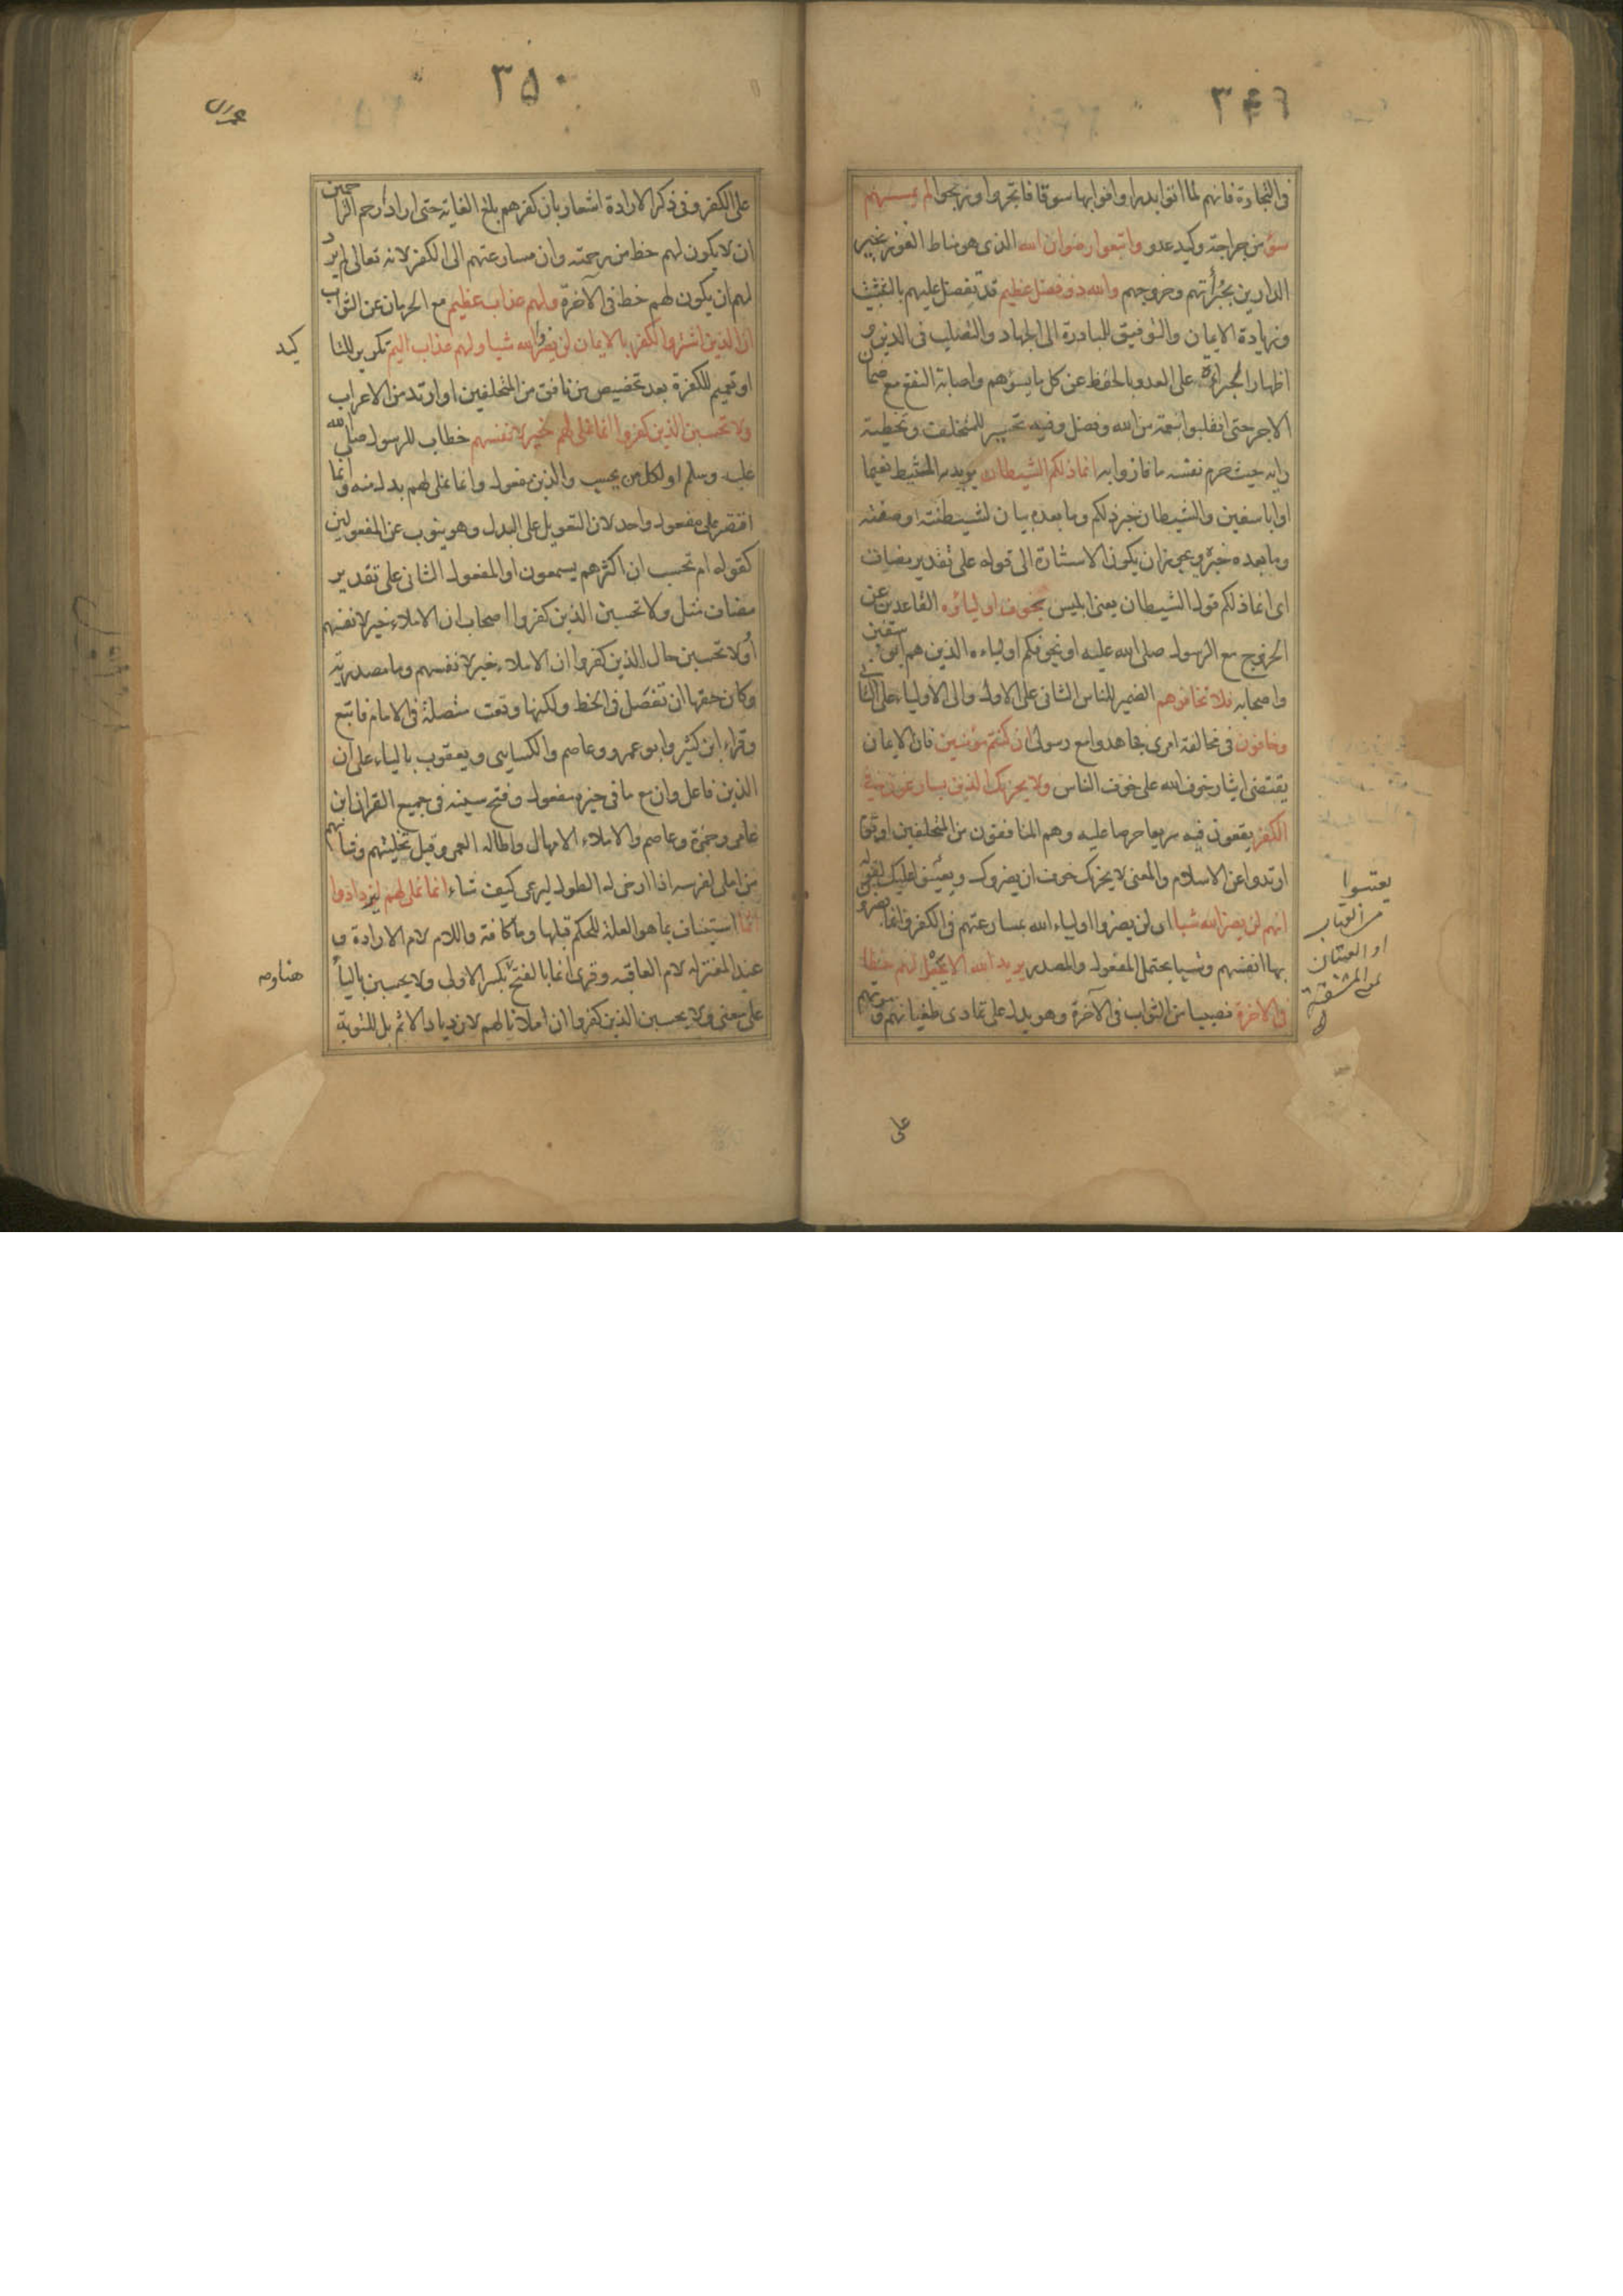 ٣٤٩
فى التجارة فانهم لما اتوا بدرا وافوا بها سوقا فاتجروا وربحوا لم يمسسهم
سوء من جراحة وكيد عدو واتبعوا رضوان الله الذى هو مناط الفوز بخير
الدارين بجرأتهم وخروجهم والله ذو فضل عظيم قد تفضل عليهم بالتثبيت
وزيادة الايمان والتوفيق للمبادرة الى الجهاد والتصلب فى الدين و
اظهار الجراءة على العدو بالحفظ عن كل ما يسؤهم واصابة النفع مع ضمان
الاجر حتى انقلبوا بنعمة من الله وفضل وفيه تحسير للمتخلف وتخطية
رايه حيث حرم نفسه ما فازوا به انما ذلكم الشيطان يريد به المثبط نعيما
او ابا سفين والشيطان خبر ذلكم وما بعده بيان لشيطنته او صفته
وما بعده خبره ويجوز ان يكون الاشارة الى قوله على تقدير مضاف
اى انما ذلكم قول الشيطان يعنى ابليس يخوف اولياؤه القاعدين عن
الخروج مع الرسول صلى الله عليه او يخوفكم اولياءه الذين هم ابو سفين
واصحابه فلا تخافوهم الضمير للناس الثانى على الاول والى الاولياء على الثانى
وخافون فى مخالفة امرى فجاهدوا مع رسولى ان كنتم مؤمنين فان الايمان
يقتضى ايثار خوف الله على خوف الناس ولا يحزنك الذين يسارعون فى
الكفر يقعون فيه سريعا حرصا عليه وهم المنافقون من المتخلفين او قوم
ارتدوا عن الاسلام والمعنى لا يحزنك خوف ان يضروك ويعينوا عليك لقوله
انهم لن يضروا الله شيا اى لن يضروا اولياء الله بمسارعتهم فى الكفر وانما يضرون
بها انفسهم وشيا يحتمل المفعول والمصدر يريد الله الا يجعل لهم حظا
فى الاخرة نصيبا من الثواب فى الآخرة وهو يدل على تمادى طغيانهم وموتهم
على
٣٥٠
على الكفر وفى ذكر الارادة اشعار بان كفرهم بلغ الغاية حتى اراد ارحم الراحمين
ان لا يكون لهم حظ من رحمته وان مسارعتهم الى الكفر لانه تعالى لم يرد
لهم ان يكون لهم حظ فى الآخرة ولهم عذاب عظيم مع الحرمان عن الثواب
ان الذين اشتروا الكفر بالايمان لن يضروا الله شيا ولهم عذاب اليم تكرير للتا
كيد
او تعميم للكفرة بعد تخصيص من نافق من المتخلفين او ارتد من الاعراب
ولا تحسبن الذين كفروا انما نملى لهم خير لانفسهم خطاب للرسول صلى الله
عليه وسلم او لكل من يحسب والذين مفعول وانما نملى لهم بدل منه وانما
اقتصر على مفعول واحد لان التعويل على البدل وهو ينوب عن المفعولين
كقوله ام تحسب ان اكثرهم يسمعون او المفعول الثانى على تقدير
مضاف مثل ولا تحسبن الذين كفروا اصحاب ان الاملاء خير لانفسهم
او لا تحسبن حال الذين كفروا ان الاملاء خير لانفسهم وما مصدرية
وكان حقها ان تفصل فى الخط ولكنها وقعت متصلة فى الامام فاتبع
وقراء ابن كثير وابو عمرو وعاصم والكسايى ويعقوب بالياء على ان
الذين فاعل وان مع ما فى حيزه مفعول وفتح سينه فى جميع القران ابن
عامر وحمزة وعاصم والاملاء الامهال واطالة العمر وقيل تخليتهم وشانهم
من املى لفرسه اذا ارخى له الطول ليرعى كيف شاء انما نملى لهم ليزدادوا
اثما استيناف بما هو العلة للحكم قبلها وما كافة واللام لام الارادة و
عند المعتزله لام العاقبه وقرى انما بالفتح بكسر الاولى ولا يحسبن باليأ
على معنى ولا يحسبن الذين كفروا ان املانا لهم لازدياد الاثم بل للتوبة